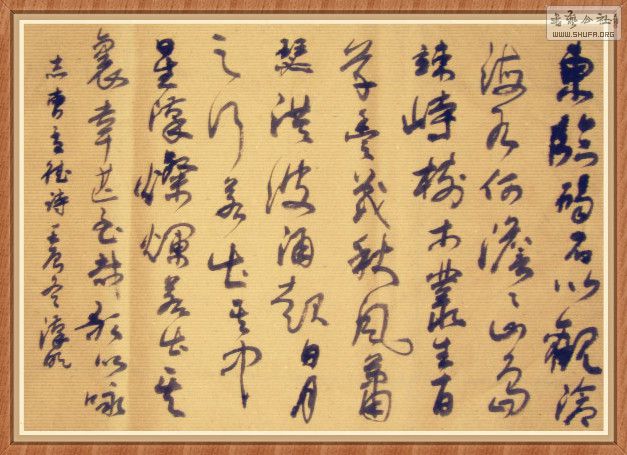 東臨碣石以觀滄
海水何澹〻山島
竦峙樹木叢生百
草豐茂秋風蕭
瑟洪波涌起日月
之行若出其中
星漢燦爛若出其
裏幸甚至哉歌以咏
志曹孟德诗壬辰冬
书艺公社
WWW.SHUFA.ORG